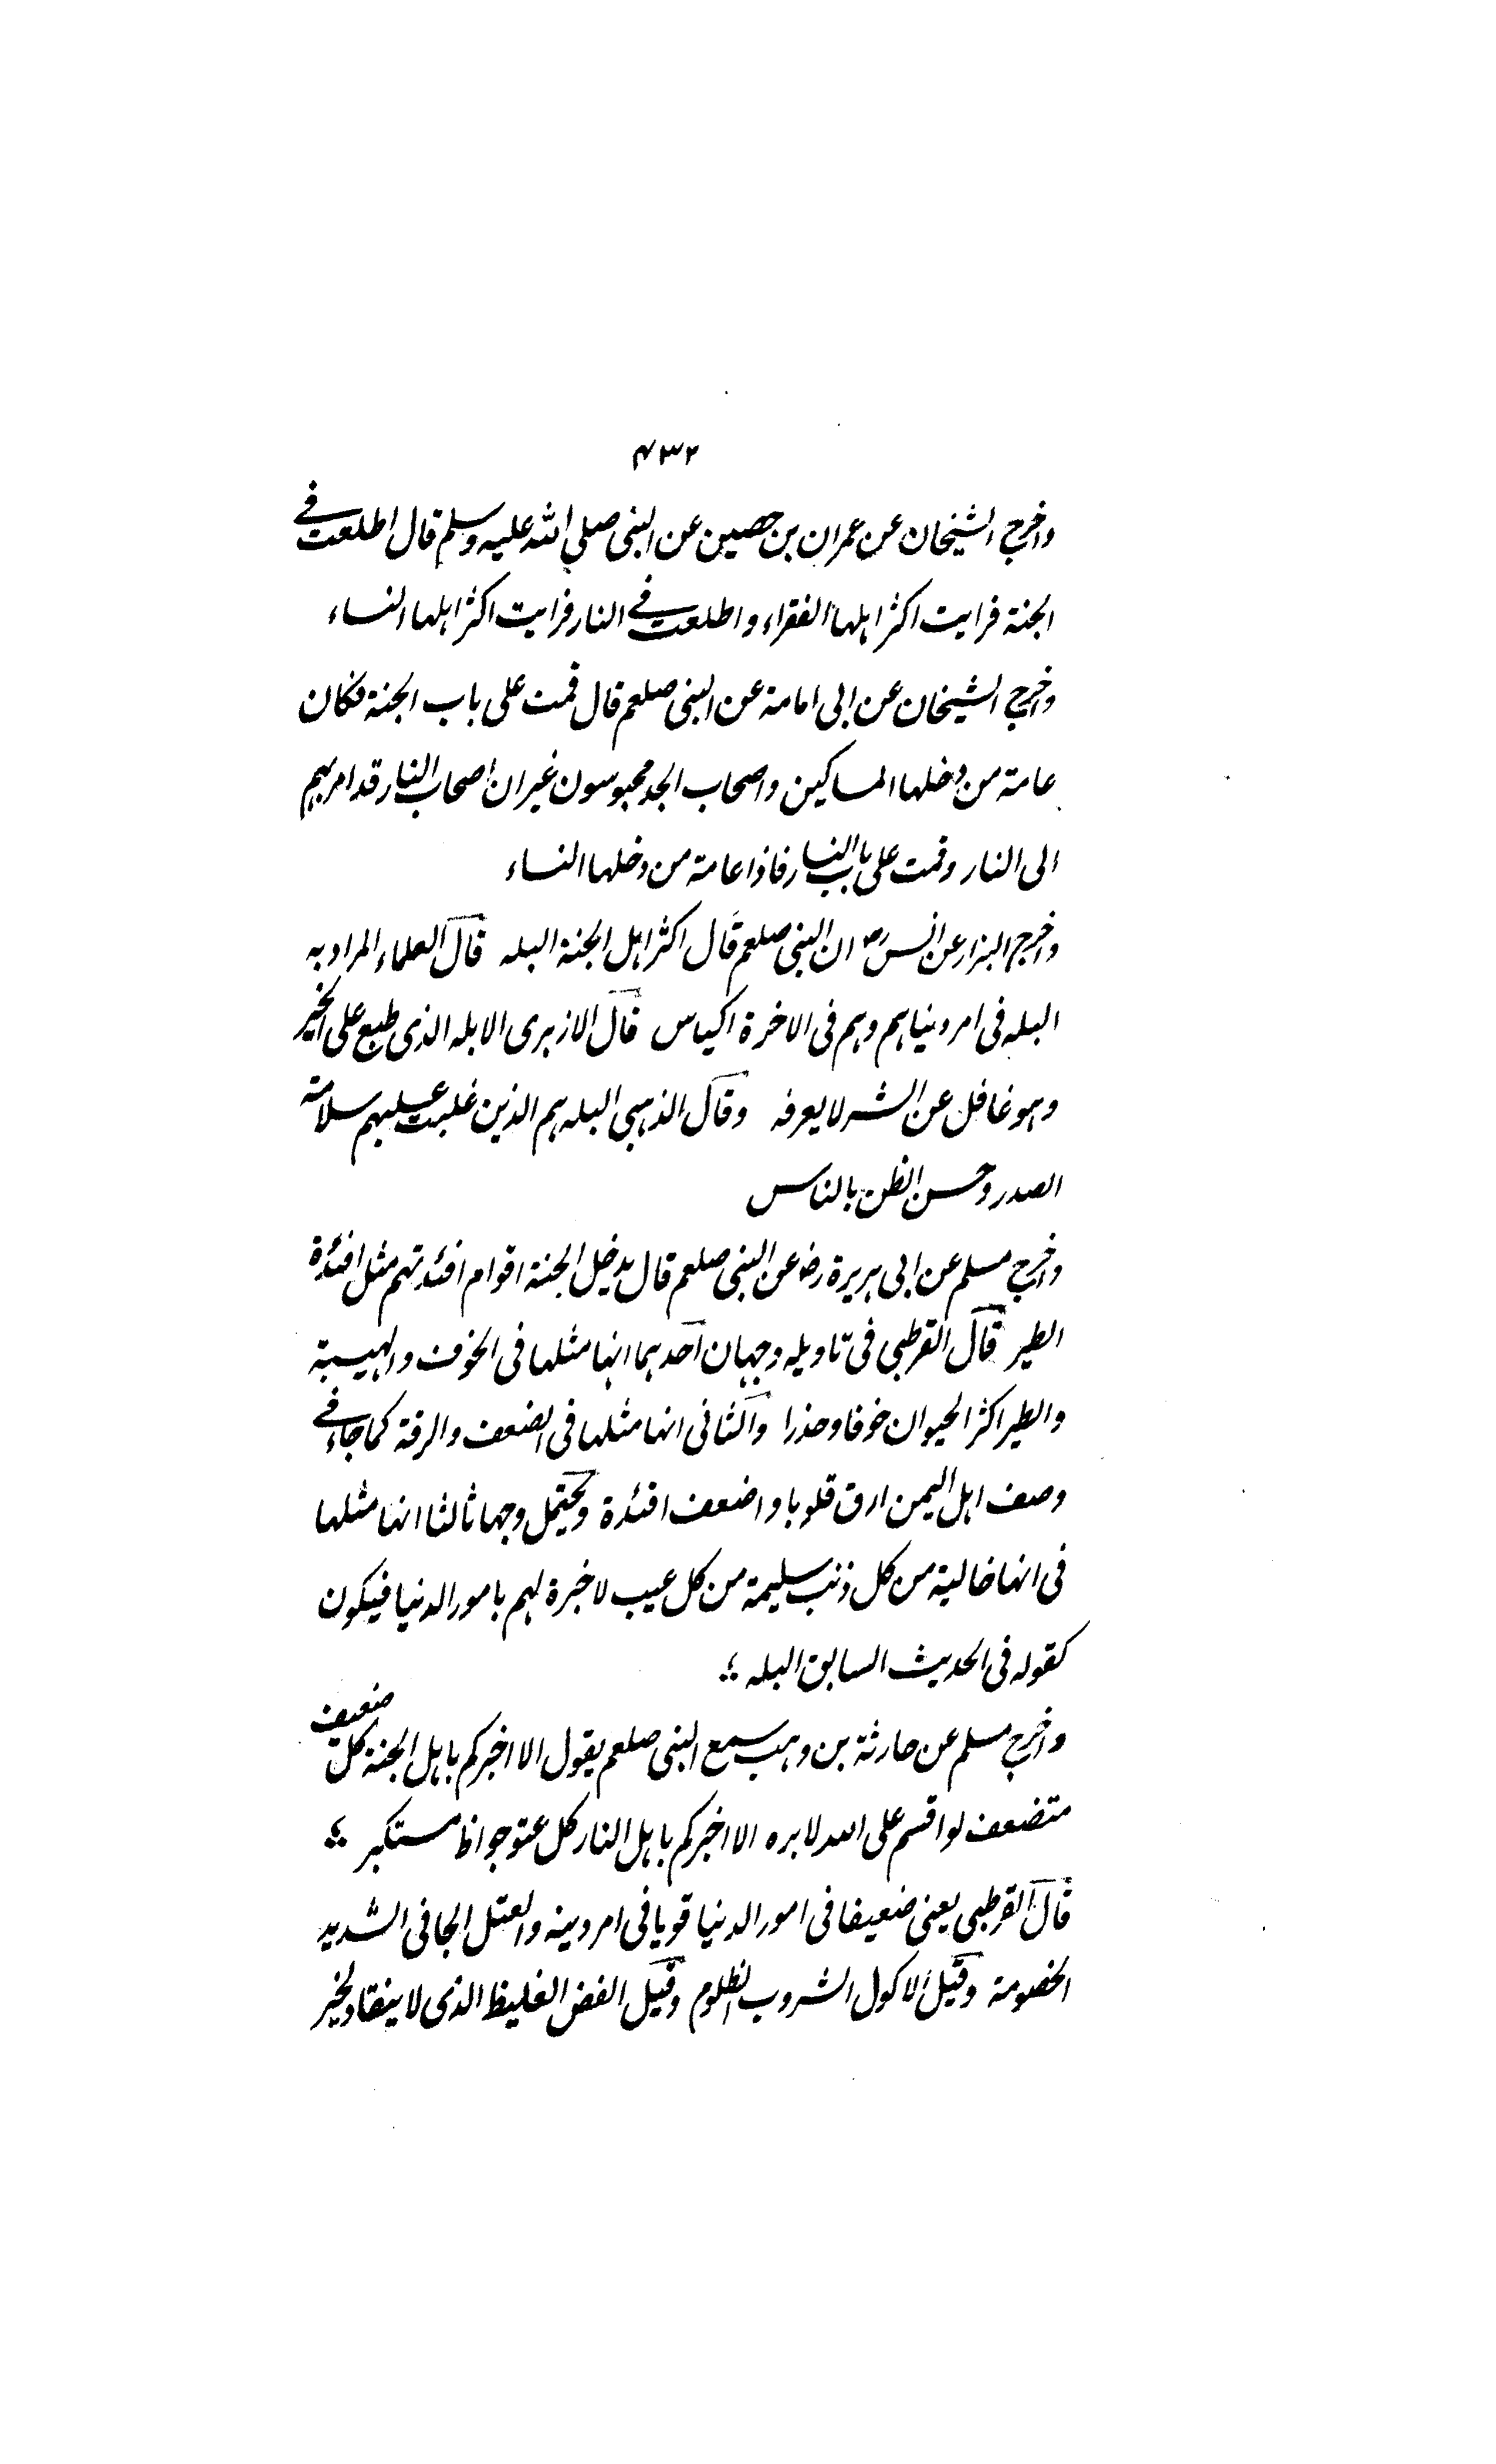 ۴۳۲
واخرج الشیخان عن عمران بن حصین عن النبی صلی الله علیه وسلم قال اطلعت فے
الجنة فرایت اکثر اہلہا الفقراء واطلعت فے النار فرایت اکثر اہلہا النساء
واخرج الشیخان عن ابی امامة عن النبی صلعم قال قمت علی باب الجنة فکان
عامة من دخلہا المساکین واصحاب الجد محبوسون غیر ان اصحاب النار قد امر بہم
الی النار وقمت علی باب النار فاذا عامة من دخلہا النساء
واخرج البزار عن انس رض ان النبی صلعم قال اکثر اہل الجنة البله قال العلماء المراد به
البله فی امر دنیاہم وہم فی الاخرة اکیاس قال الازہری الابله الذی طبع علی الخیر
وہو غافل عن الشر لا یعرفه وقال الذہبی البله ہم الذین غلبت علیہم سلامة
الصدر وحسن الظن بالناس
واخرج مسلم عن ابی ہریرة رض عن النبی صلعم قال یدخل الجنة اقوام افئدتہم مثل افئدة
الطیر قال القرطبی فی تاویله وجہان احدہما انہا مثلہا فی الخوف والہیبة
والطیر اکثر الحیوان خوفا وحذرا والثانی انہا مثلہا فی الضعف والرقة کما جاء فے
وصف اہل الیمن ارق قلوبا واضعف افئدة ویحتمل وجہا ثالثا انہا مثلہا
فی انہا خالیة من کل ذنب سلیمة من کل عیب لا خبرة لہم بامور الدنیا فیکون
کقوله فی الحدیث السابق البله
واخرج مسلم عن حارثة بن وہب سمع النبی صلعم یقول الا اخبرکم باہل الجنة کل ضعیف
متضعف لو اقسم علی الله لابره الا اخبرکم باہل النار کل عتو جواظ مستکبر
قال القرطبی یعنی ضعیفا فی امور الدنیا قویا فی امر دینه والعتل الجافی الشدید
الخصومة وقیل الاکول الشروب الظلوم وقیل الفض الغلیظ الذی لا ینقاد لخیر